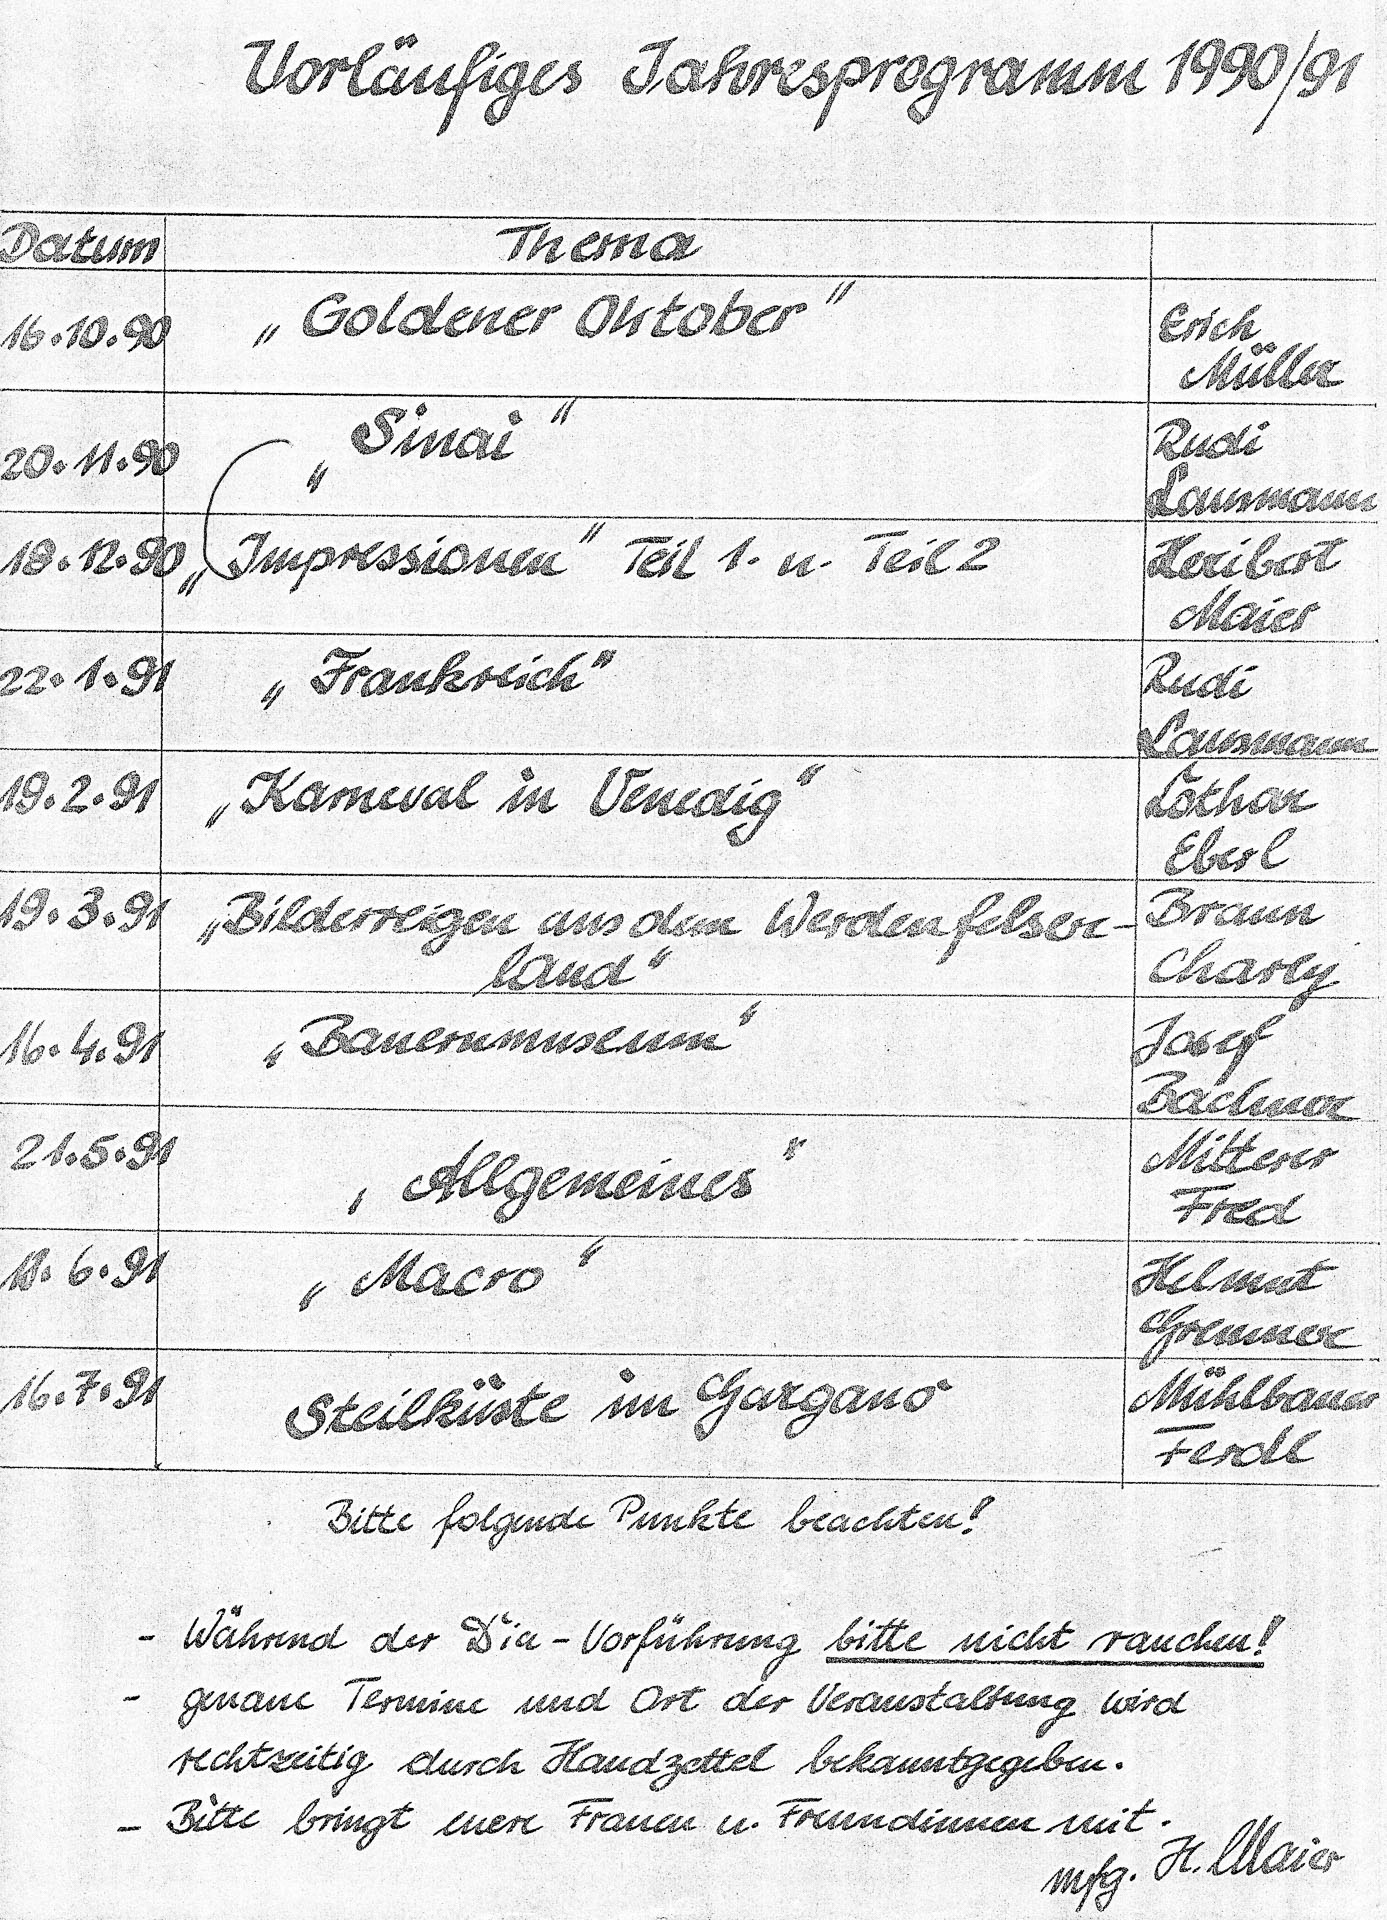 Vorläufiges Jahresprogramm 1990/91
Datum Thema
16.10.90 „Goldener Oktober“ Erich
Müller
20.11.90 „Sinai“ Rudi
Lausmann
18.12.90 „Impressionen“ Teil 1. u. Teil 2 Heribert
Maier
22.1.91 „Frankreich“ Rudi
Lausmann
19.2.91 „Karneval in Venedig“ Lothar
Eberl
19.3.91 „Bilderreigen aus dem Werdenfelser- Braun
land“ Charly
16.4.91 „Bauernmuseum“ Josef
Bachner
21.5.91 „Allgemeines“ Mitterer
Fred
18.6.91 „Macro“ Helmut
16.7.91 Steilküste im Gargano Mühlbauer
Ferdl
Bitte folgende Punkte beachten!
- Während der Dia-Vorführung bitte nicht rauchen!
- genaue Termine und Ort der Veranstaltung wird
rechtzeitig durch Handzettel bekanntgegeben.
- Bitte bringt euere Frauen u. Freundinnen mit.
mfg. H. Maier